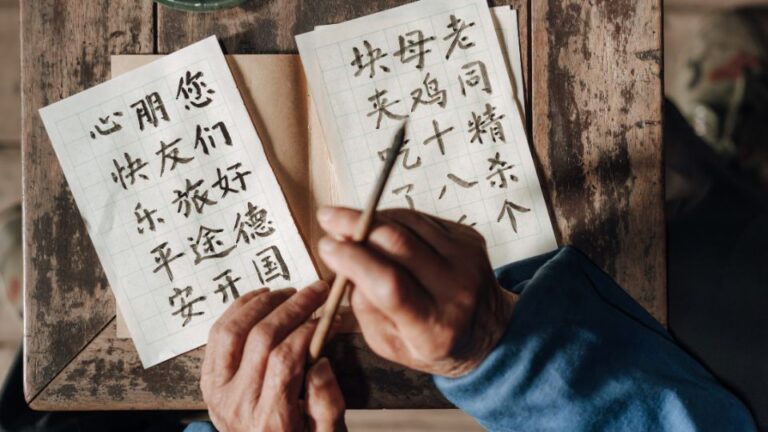 您们好德国
朋友旅途开
心快乐平安
老同精杀个
母鸡十八
块夹吃了